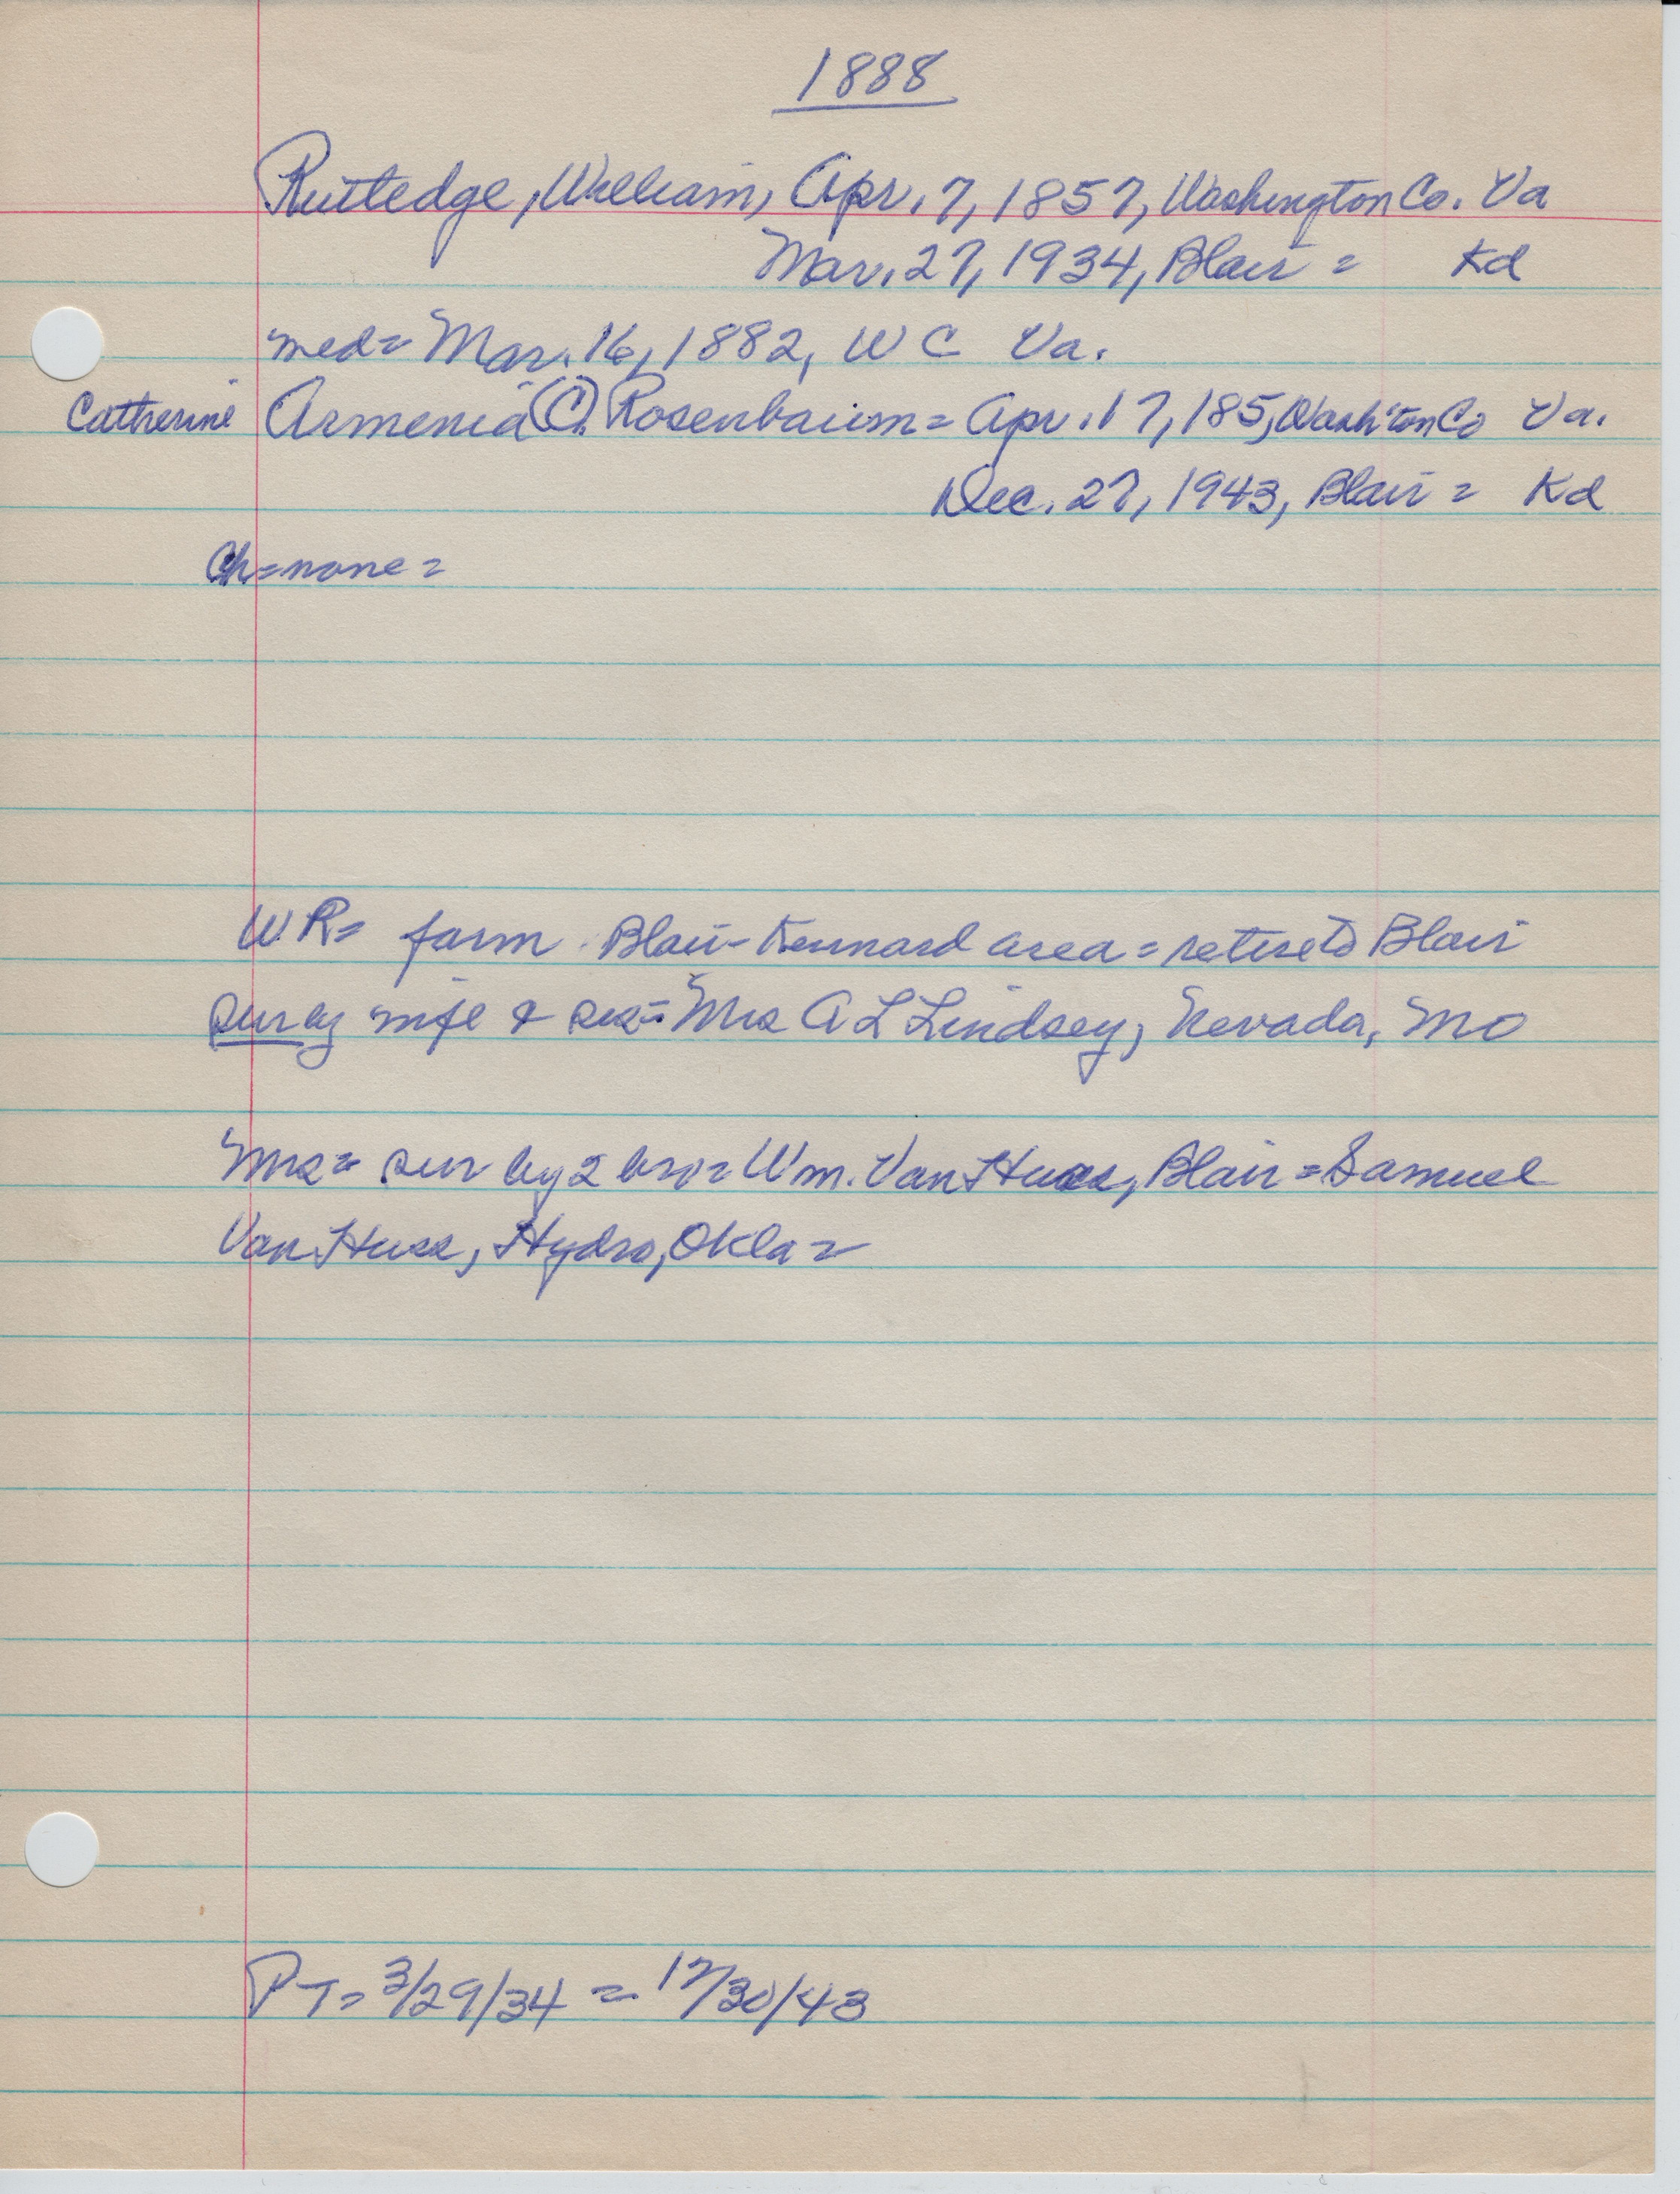 1888
Rutledge, William, Apr. 7, 1857, Washington Co. Va
Mar. 27, 1934, Blair = Kd
med = Mar. 16, 1882, W C Va.
Catherine Armenia (C). Rosenbaum = Apr. 17, 185, Wash'ton Co Va.
Dec. 27, 1943, Blair = Kd
Ch = none =
WR = farm Blair - Kennard area = retire to Blair
sur by wife & sis = Mrs A L Lindsey, Nevada, Mo
Mrs = sur by 2 bro = Wm. Van Huss, Blair = Samuel
Van Huss, Hydro, Okla =
PT = 3/29/34 = 12/30/43